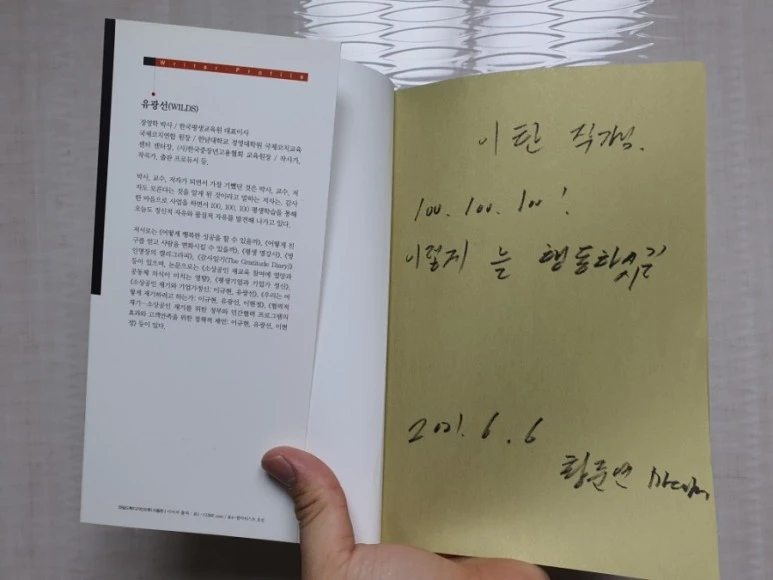 Writer-Profile
유광선(WILDS)
경영학 박사 / 한국평생교육원 대표이사
국제코치연합 원장 / 한남대학교 경영대학원 국제코치교육
센터 센터장, (사)한국중장년고용협회 교육원장 / 작사가,
작곡가, 출판 프로듀서 등.
박사, 교수, 저자가 되면서 가장 기뻤던 것은 박사, 교수, 저
자도 모른다는 것을 알게 된 것이라고 말하는 저자는, 감사
한 마음으로 사업을 하면서 100, 100, 100 평생학습을 통해
오늘도 정신적 자유와 물질적 자유를 발견해 나가고 있다.
저서로는 《어떻게 행복한 성공을 할 수 있을까》, 《어떻게 친
구를 얻고 사람을 변화시킬 수 있을까》, 《평생 명강사》, 《명
인명장의 캘리그라피》, 《감사일기(The Gratitude Diary)》
등이 있으며, 논문으로는 《소상공인 재교육 참여에 열망과
공동체 의식이 미치는 영향》, 《평생기업과 기업가 정신》,
《소상공인 재기와 기업가정신: 이규현, 유광선》, 《우리는 어
떻게 재기하려고 하는가: 이규현, 유광선, 이현정》, 《협력적
재기-소상공인 재기를 위한 정부와 민간협력 프로그램의
효과와 고객만족을 위한 정책적 제언: 이규현, 유광선, 이현
정》 등이 있다.
이탄 작가님.
100. 100. 100!
이렇게 늘 행동하시길
2021. 6. 6
황준연